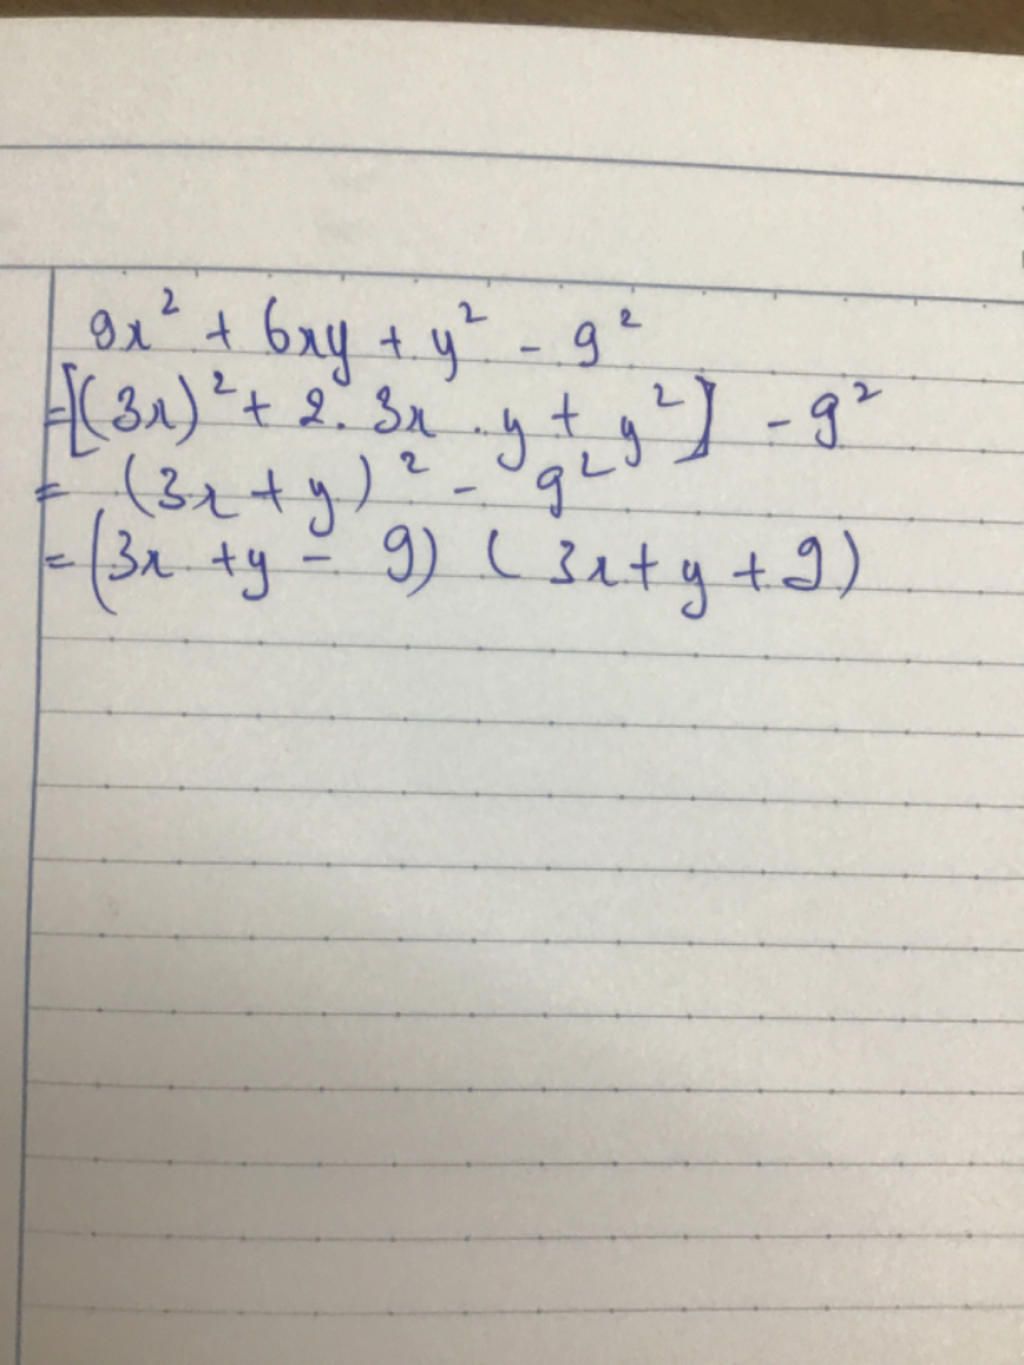 9x² + 6xy + y² - 9²
=[(3x)² + 2. 3x . y + y²] - 9²
= (3x + y)² - 9²
= (3x + y - 9) (3x + y + 9)